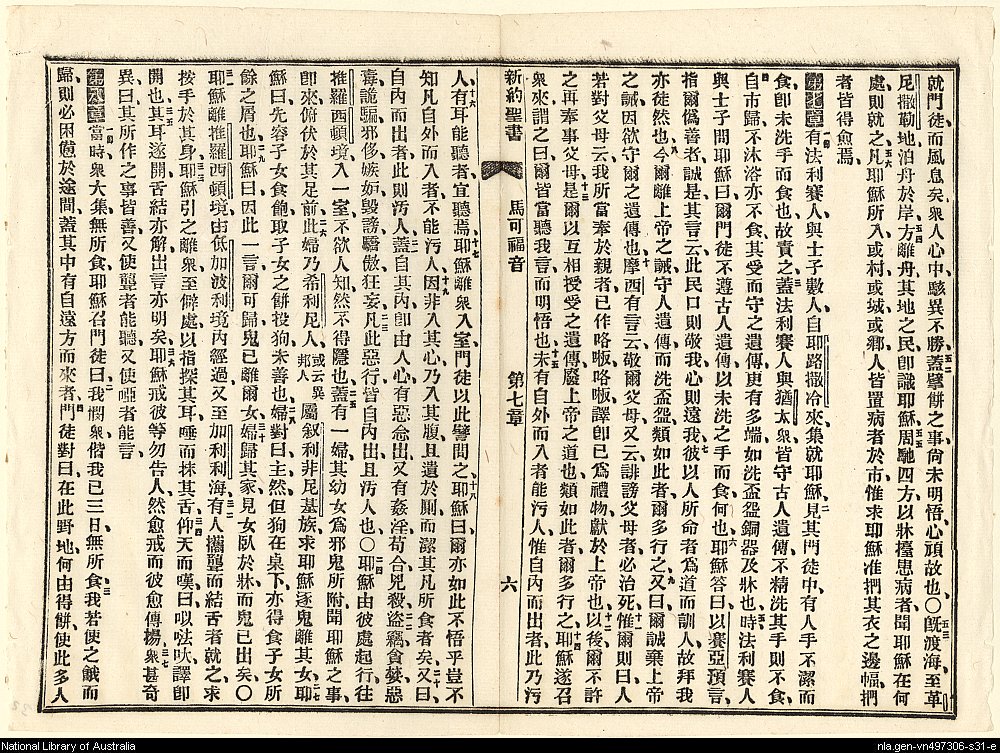 就門徒而風息矣衆人心中駭異不勝蓋擘餅之事尙未明悟心頑故也〇旣渡海至革
尼撒勒地泊舟於岸方離舟其地之民卽識耶穌周馳四方以牀擡患病者聞耶穌在何
處則就之凡耶穌所入或村或城或鄉人皆置病者於市惟求耶穌准捫其衣之邊幅捫
者皆得愈焉
第七章有法利賽人與士子數人自耶路撒冷來集就耶穌見其門徒中有人手不潔而
食卽未洗手而食也故責之蓋法利賽人與猶太衆皆守古人遺傳不精洗其手則不食
自市歸不沐浴亦不食其受而守之遺傳更有多端如洗盃盌銅器及牀也時法利賽人
與士子問耶穌曰爾門徒不遵古人遺傳以未洗之手而食何也耶穌答曰以賽亞預言
指爾僞善者誠是其言云此民口則敬我心則遠我彼以人所命者爲道而訓人故拜我
亦徒然也今爾離上帝之誡守人遺傳而洗盃盌類如此者爾多行之又曰爾誠棄上帝
之誡因欲守爾之遺傳也摩西有言云敬爾父母又云誹謗父母者必治死惟爾則曰人
若對父母云我所當奉於親者已作咯㗑咯㗑譯卽已爲禮物獻於上帝也以後爾不許
之再奉事父母是爾以互相授受之遺傳廢上帝之道也類如此者爾多行之耶穌遂召
衆來謂之曰爾皆當聽我言而明悟也未有自外而入者能污人惟自內而出者此乃污
新約聖書 馬可福音 第七章 六
人有耳能聽者宜聽焉耶穌離衆入室門徒以此譬問之耶穌曰爾亦如此不悟乎豈不
知凡自外而入者不能污人因非入其心乃入其腹且遺於厠而潔其凡所食者矣又曰
自內而出者此則污人蓋自其內卽由人心有惡念出又有姦淫苟合兇殺盜竊貪婪惡
毒詭騙邪侈嫉妬毀謗驕傲狂妄凡此惡行皆自內出且污人也〇耶穌由彼處起行往
推羅西頓境入一室不欲人知然不得隱也蓋有一婦其幼女爲邪鬼所附聞耶穌之事
卽來俯伏於其足前此婦乃希利尼人或云異邦人屬叙利非尼基族求耶穌逐鬼離其女耶
穌曰先容子女食飽取子女之餅投狗未善也婦對曰主然但狗在桌下亦得食子女所
餘之屑也耶穌曰因此一言爾可歸鬼已離爾女婦歸其家見女臥於牀而鬼已出矣〇
耶穌離推羅西頓境由低加波利境內經過又至加利利海有人攜聾而結舌者就之求
按手於其身耶穌引之離衆至僻處以指探其耳唾而抹其舌仰天而嘆曰㕥㕸㕭譯卽
開也其耳遂開舌結亦解出言亦明矣耶穌戒彼等勿告人然愈戒而彼愈傳揚衆甚奇
異曰其所作之事皆善又使聾者能聽又使啞者能言
第八章當時衆大集無所食耶穌召門徒曰我憫衆偕我已三日無所食我若使之餓而
歸則必困憊於途間蓋其中有自遠方而來者門徒對曰在此野地何由得餅使此多人
National Library of Australia
nla.gen-vn497306-s31-e